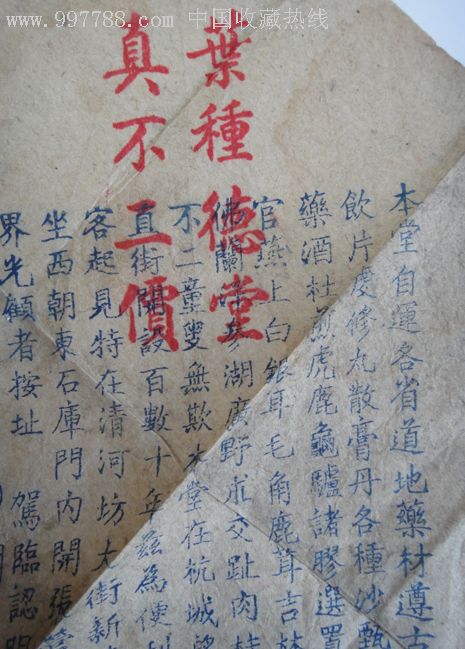 www.997788.com 中国收藏热线
葉種德堂
真不二價
本堂自運各省道地藥材遵古
飲片虔修丸散膏丹各種沙甑
藥酒杜煎虎鹿龜驢諸膠選置
官燕上白銀耳毛角鹿茸吉林
佛蘭洋參湖廣野朮交趾肉桂
不二童叟無欺本堂在杭城望
直街開設百數十年茲為便利
客起見特在清河坊大街新
坐西朝東石庫門內開張
界光顧者按址 駕臨認明